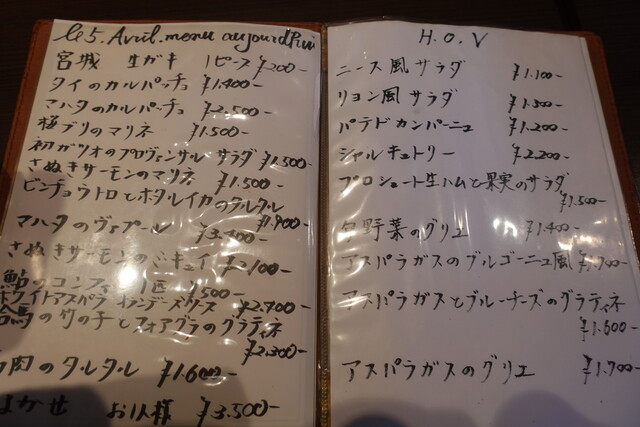 le 5. Avril. menu aujourd'hui
宮城 生ガキ 1ピース ¥200-
タイのカルパッチョ ¥1.400-
マハタのカルパーチョ ¥2.500-
極ブリのマリネ ¥1.500-
初ガツオのプロヴァンサルサラダ ¥1.500-
さぬきサーモンのマリネ ¥1.500-
ビンチョウトロとホタルイカのタルタル
¥1.900-
マハタのヴァプール
さぬきサーモンのミキュイ ¥2.100-
鮎のコンフィ 1匹
ホワイトアスパラ オランデーズソース ¥2.700-
の竹の子とフォアグラのグラティネ
¥2.300-
肉のタルタル ¥1.600-
まかせ お1人様 ¥3.500-
H.O.V
ニース風サラダ ¥1.100-
リヨン風サラダ ¥1.500-
パテドカンパーニュ ¥1.200-
シャルキュトリー ¥2.200-
プロシュート生ハムと果実のサラダ
¥1.500-
旬野菜のグリエ ¥1.400-
アスパラガスのブルゴーニュ風
アスパラガスとブルーチーズのグラティネ
¥1.600-
アスパラガスのグリエ ¥1.700-